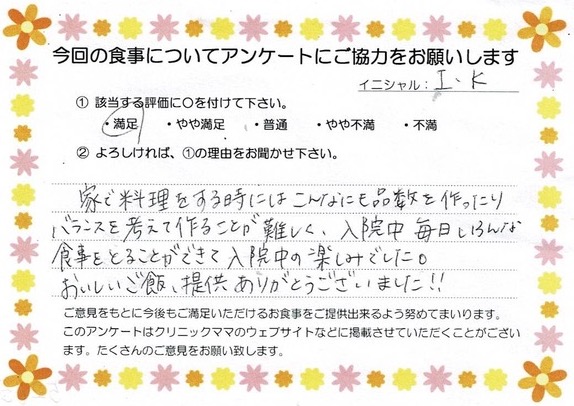 今回の食事についてアンケートにご協力をお願いします
イニシャル：I・K
① 該当する評価に○を付けて下さい。
・満足 ・やや満足 ・普通 ・やや不満 ・不満
② よろしければ、①の理由をお聞かせ下さい。
家で料理をする時にはこんなにも品数を作ったり
バランスを考えて作ることが難しく、入院中毎日いろんな
食事をとることができて入院中の楽しみでした。
おいしいご飯、提供ありがとうございました!!
ご意見をもとに今後もご満足いただけるお食事をご提供出来るよう努めてまいります。
このアンケートはクリニックママのウェブサイトなどに掲載させていただくことがござい
ます。たくさんのご意見をお願い致します。